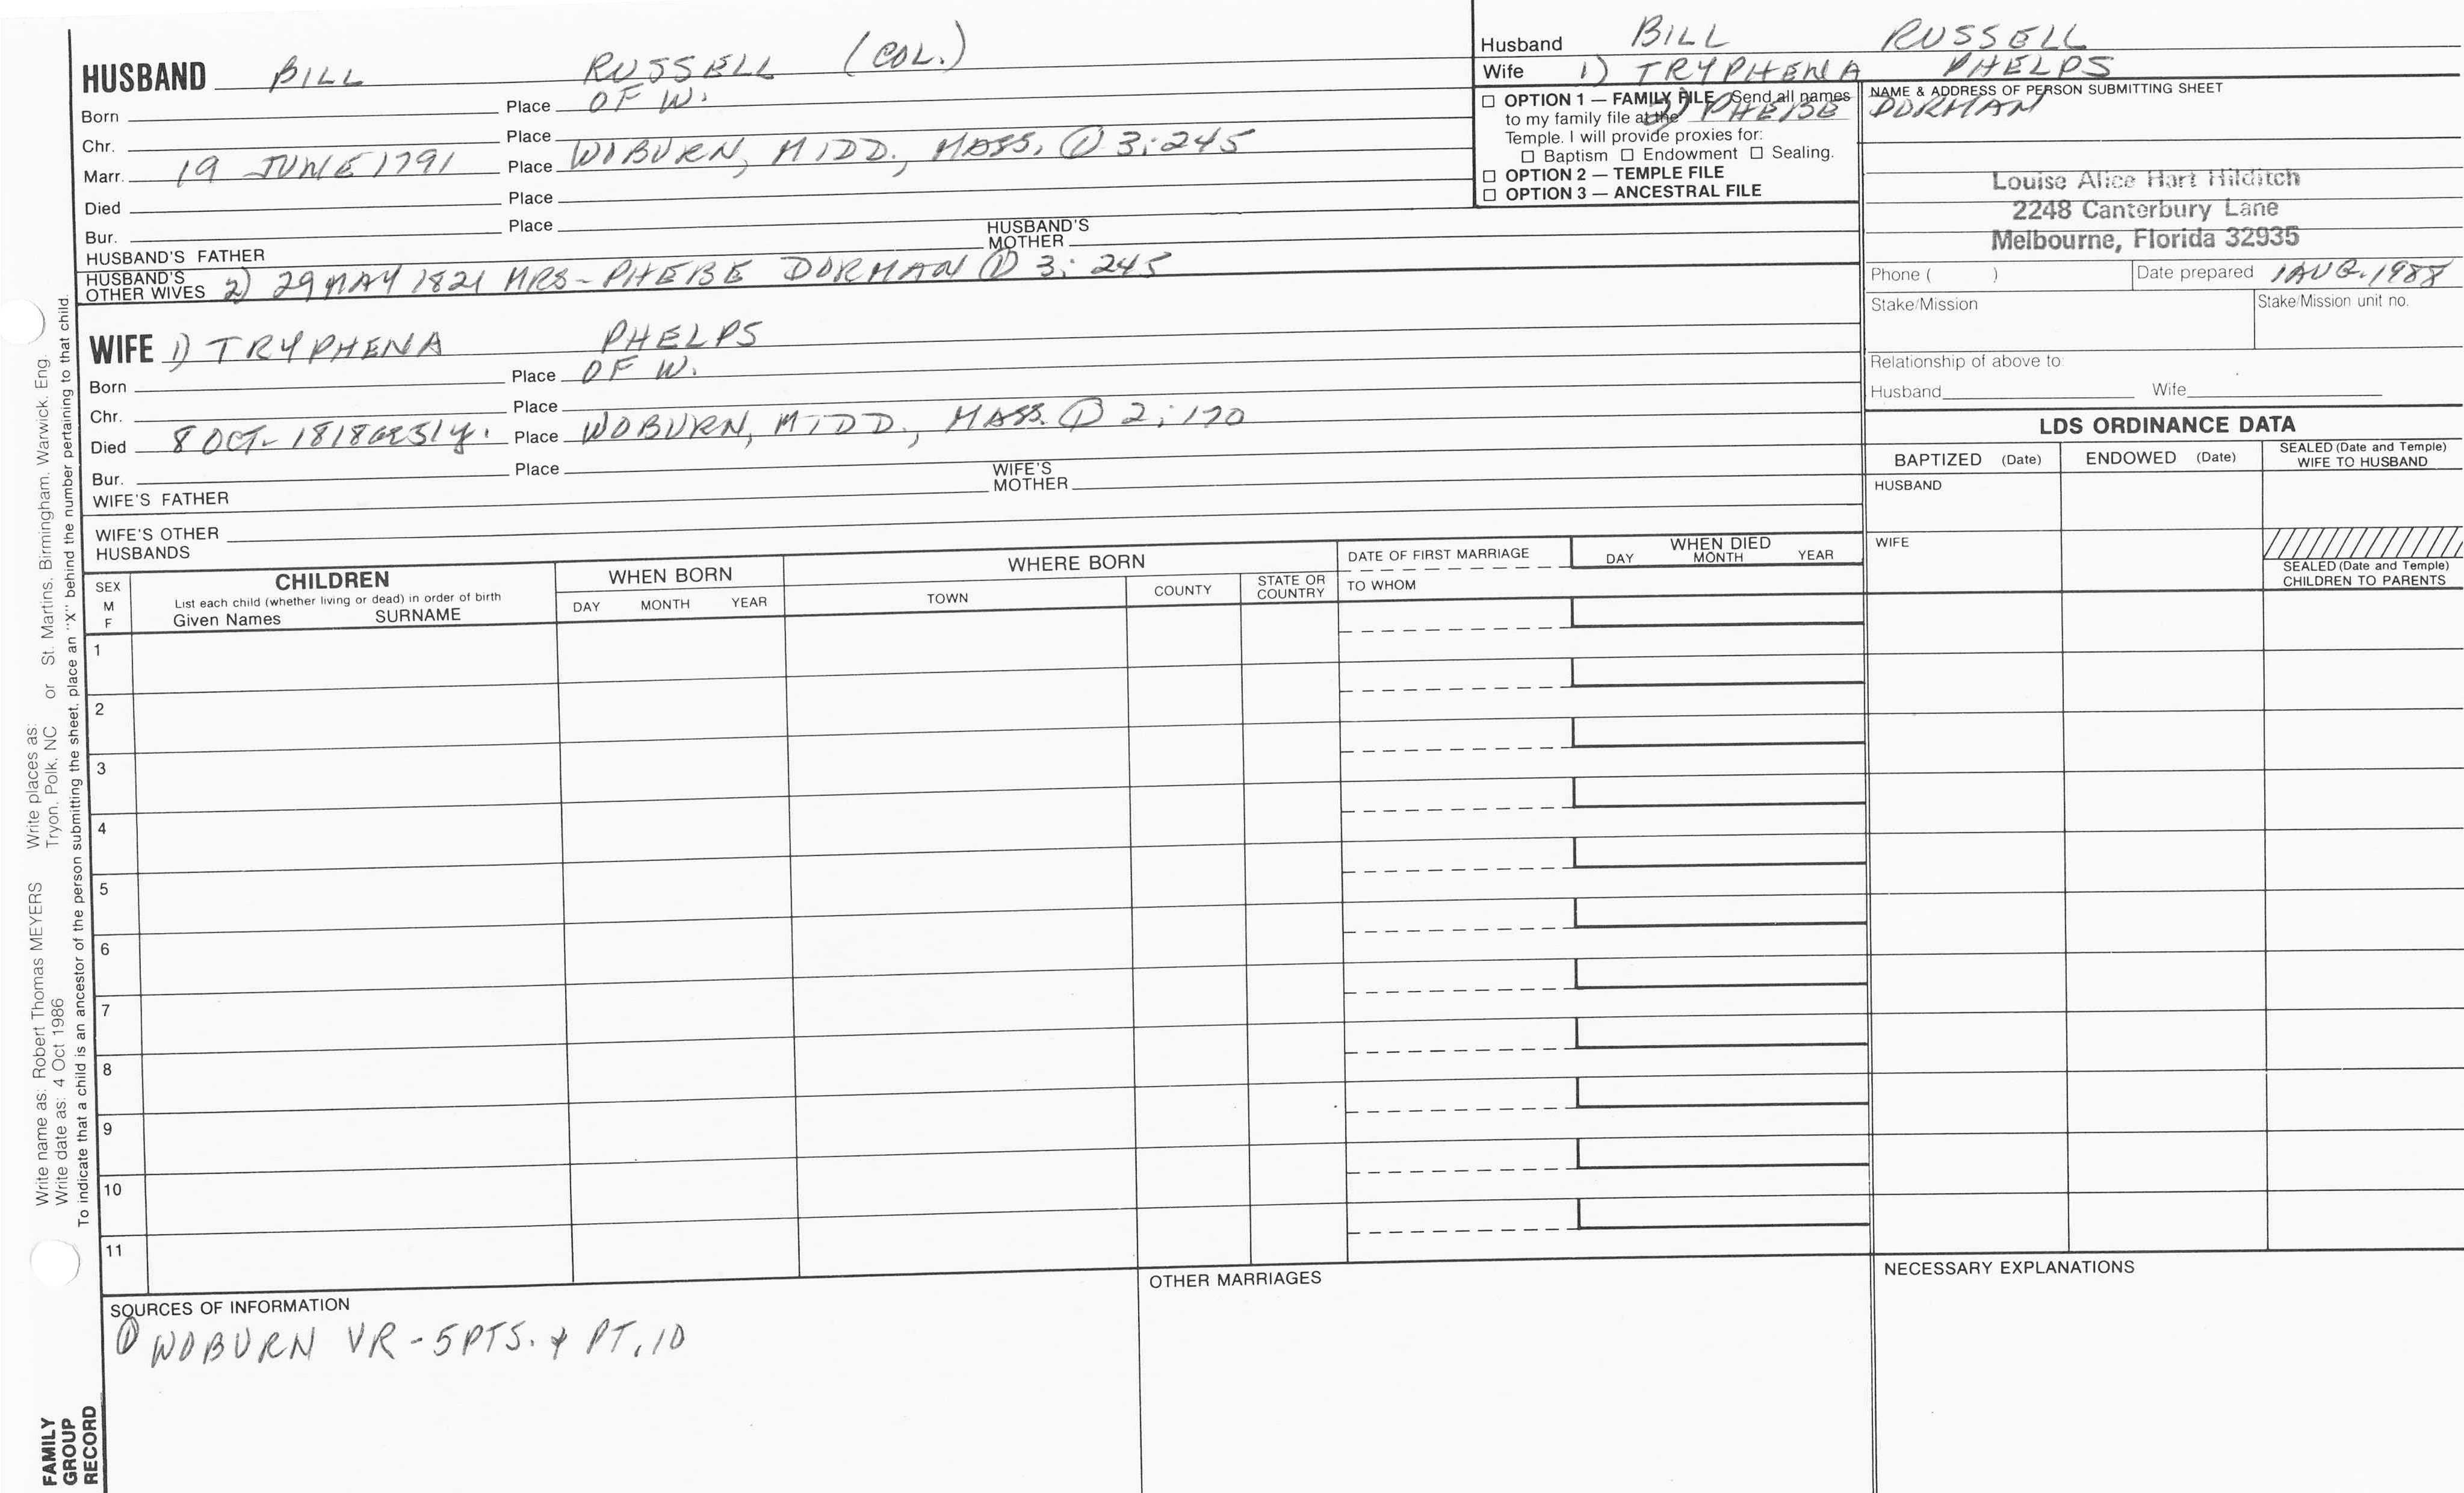 HUSBAND BILL RUSSELL (COL.)
Born Place OF W.
Chr. Place
Marr. 19 JUNE 1791 Place WOBURN, MIDD., MASS. ① 3:245
Died Place
Bur. Place
HUSBAND'S FATHER HUSBAND'S MOTHER
HUSBAND'S OTHER WIVES 2) 29 MAY 1821 MRS- PHEBE DORMAN ① 3:245
WIFE 1) TRYPHENA PHELPS
Born Place OF W.
Chr. Place
Died 8 OCT- 1818 51y. Place WOBURN, MIDD., MASS. ① 2:170
Bur. Place
WIFE'S FATHER WIFE'S MOTHER
WIFE'S OTHER HUSBANDS
Husband BILL RUSSELL
Wife 1) TRYPHENA PHELPS
2) PHEBE DORMAN
☐ OPTION 1 — FAMILY FILE Send all names
to my family file at the
Temple. I will provide proxies for:
☐ Baptism ☐ Endowment ☐ Sealing.
☐ OPTION 2 — TEMPLE FILE
☐ OPTION 3 — ANCESTRAL FILE
NAME & ADDRESS OF PERSON SUBMITTING SHEET
Louise Alice Hart Hilditch
2248 Canterbury Lane
Melbourne, Florida 32935
Phone ( ) Date prepared 1 AUG. 1988
Stake/Mission Stake/Mission unit no.
Relationship of above to:
Husband Wife
LDS ORDINANCE DATA
BAPTIZED (Date) ENDOWED (Date) SEALED (Date and Temple) WIFE TO HUSBAND
HUSBAND
WIFE
SEALED (Date and Temple) CHILDREN TO PARENTS
SEX M F
CHILDREN
List each child (whether living or dead) in order of birth
Given Names SURNAME
WHEN BORN
DAY MONTH YEAR
WHERE BORN
TOWN COUNTY STATE OR COUNTRY
DATE OF FIRST MARRIAGE
TO WHOM
WHEN DIED
DAY MONTH YEAR
1
2
3
4
5
6
7
8
9
10
11
SOURCES OF INFORMATION
① WOBURN VR - 5 PTS. & PT. 10
OTHER MARRIAGES
NECESSARY EXPLANATIONS
Write name as: Robert Thomas MEYERS Write places as:
Write date as: 4 Oct 1986 Tryon, Polk, NC or St. Martins, Birmingham, Warwick, Eng.
To indicate that a child is an ancestor of the person submitting the sheet, place an "X" behind the number pertaining to that child.
FAMILY
GROUP
RECORD